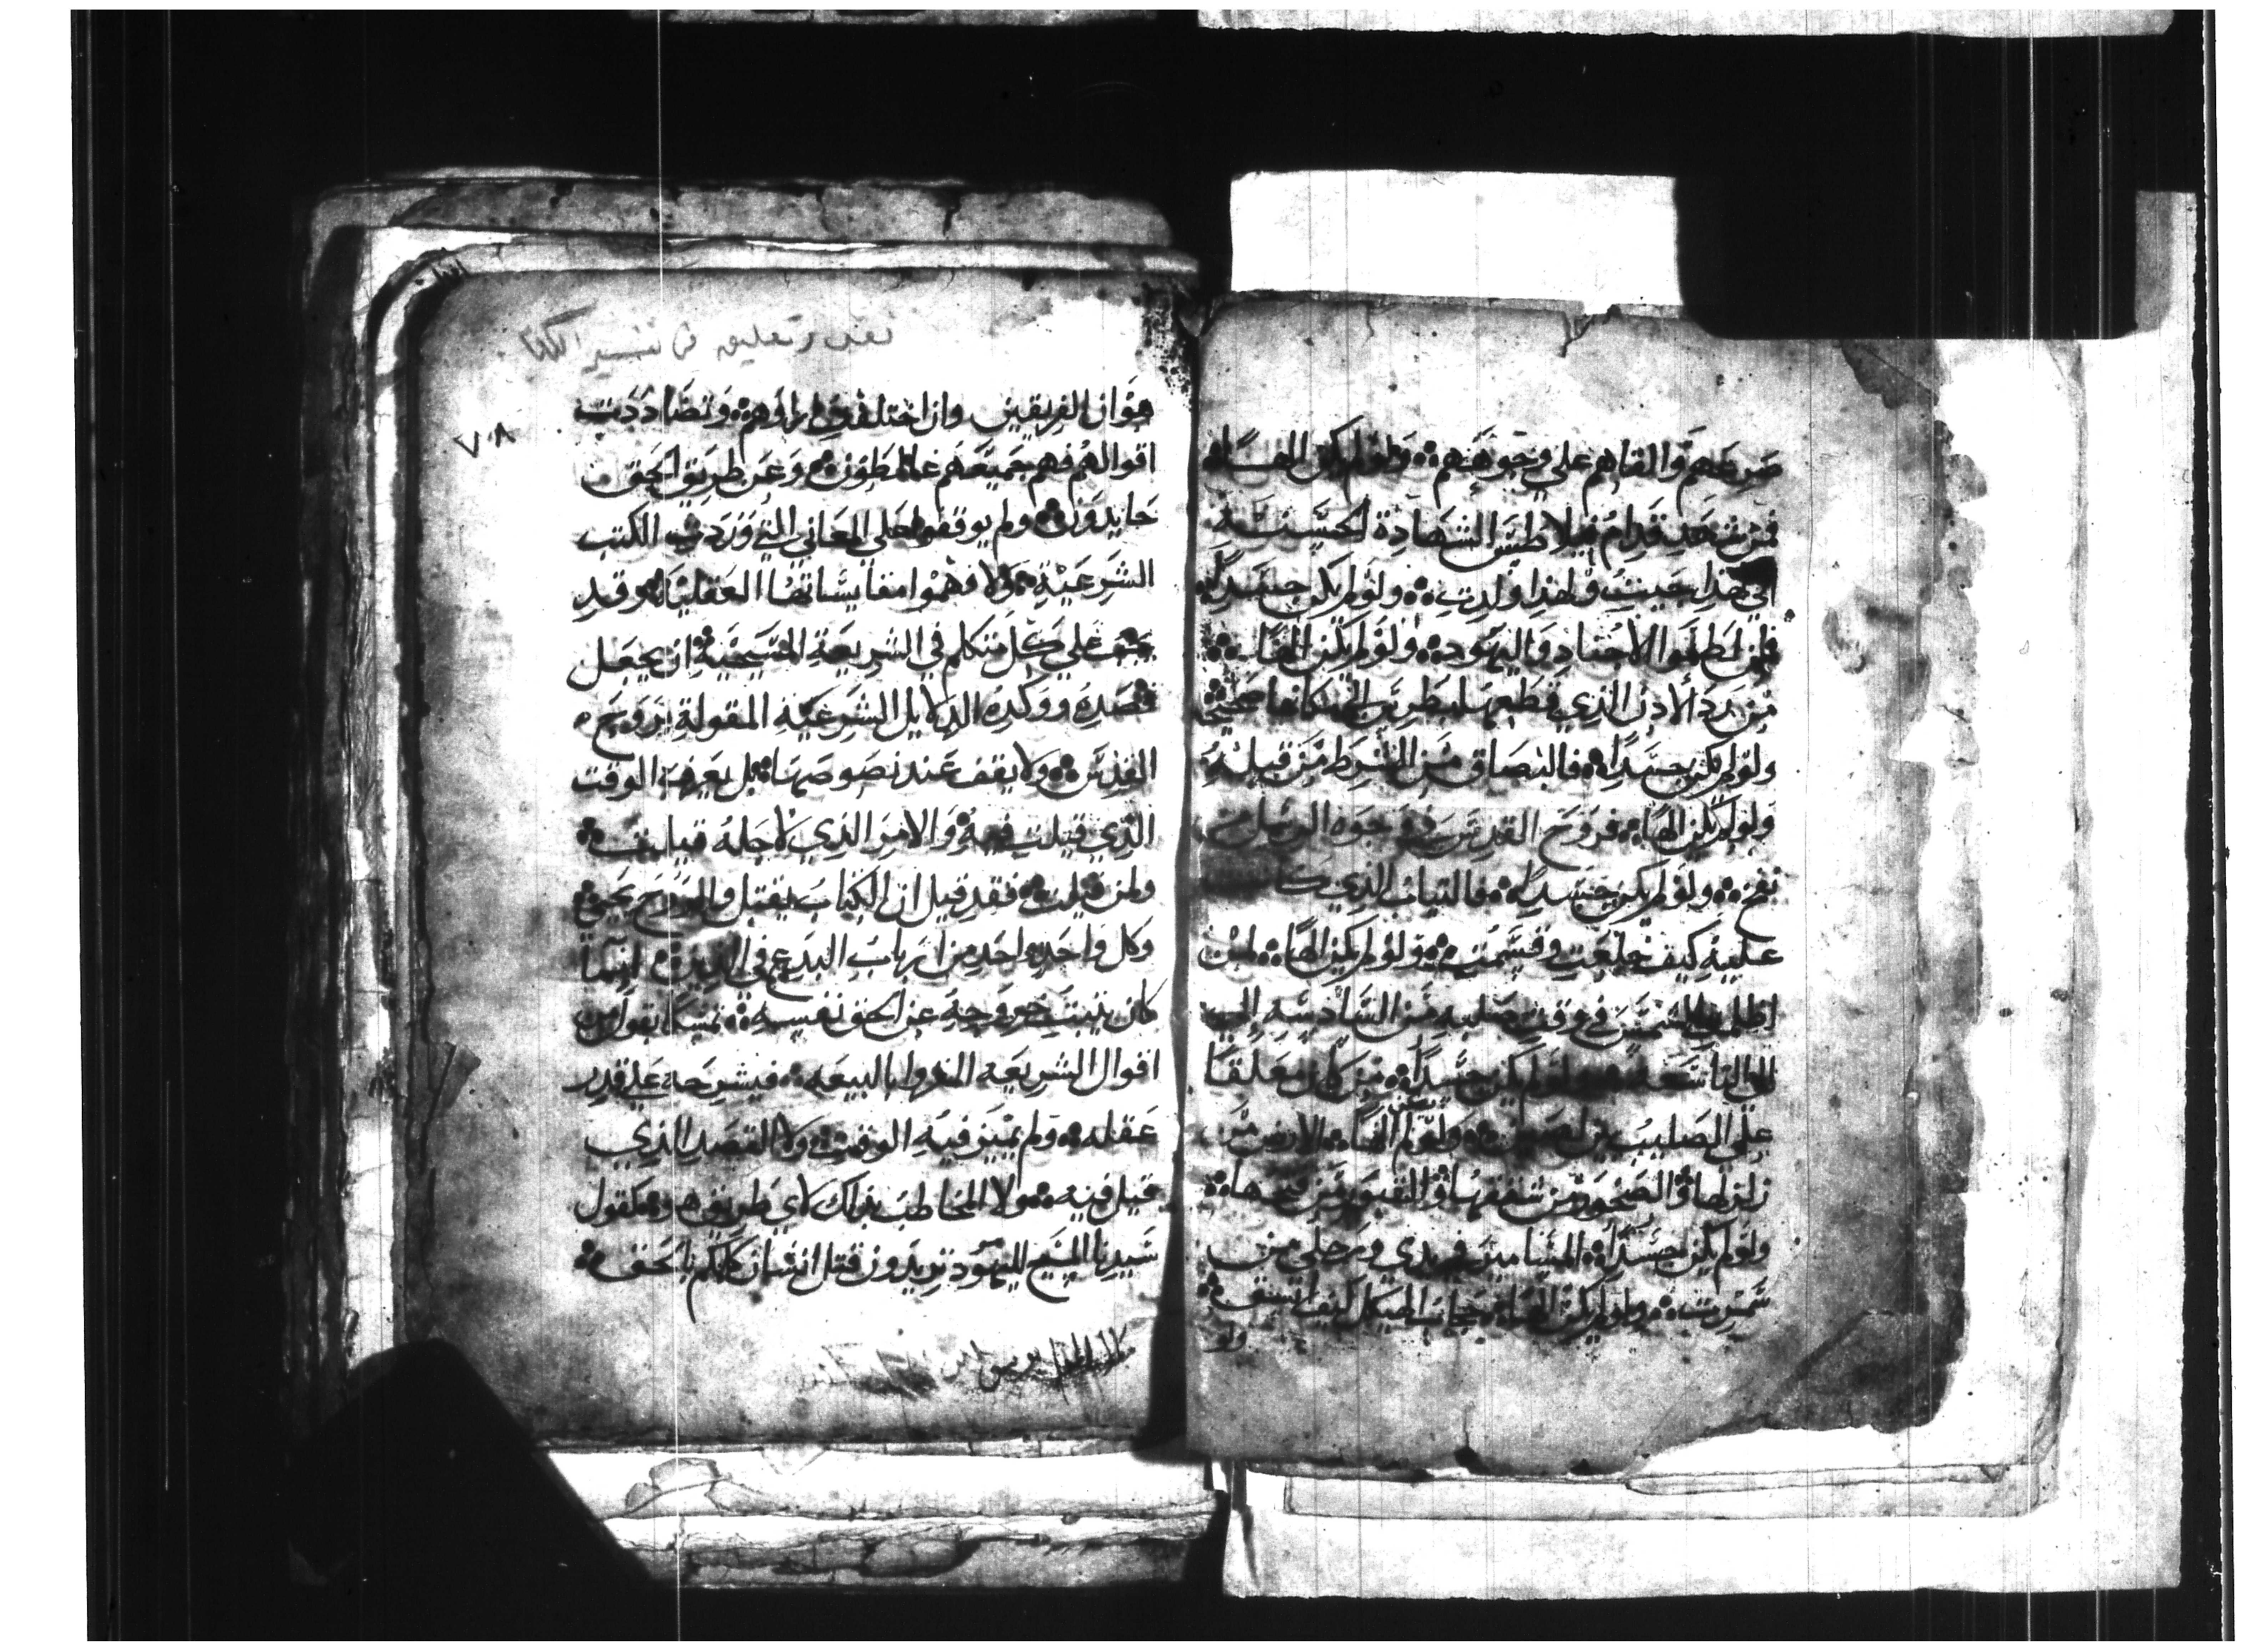 صرعهم والقاهم على وجوههم ولو لم يكن الها
فمن شهد قدام بيلاطس الشهادة الحسنة
اني لهذا جيت ولهذا ولدت ولو لم يكن جسدا
فلمن لطموا الاجناد واليهود ولو لم يكن الها
من رد الادن الذي قطعها بطرس الى مكانها صحيحة
ولو لم يكن جسدا فالبصاق من الشرط من قبله
ولو لم يكن الها فروح القدس في وجوه الرسل من
نفخ ولو لم يكن جسدا فالتياب الذي كانت
عليه كيف خلعت وقسمت ولو لم يكن الها لمن
اظلمت الشمس في وقت صلبه من السادسه الى
التاسعة ولو لم يكن جسدا من كان معلقا
على الصليب ولو لم يكن الها الارض من
زلزلها والصخور من شققها والقبور من فتحها
ولو لم يكن جسدا المسامير في يدي ورجلي من
سمرت ولو لم يكن الها حجاب الهيكل كيف انشق
ولو
نقد وتعليق في تفسير الكتاب
هو ان الفريقين وان اختلفت اراؤهم وتضاددت
٧٠٨
اقوالهم فهم جميعهم غالطون وعن طريق الحق
حايدون ولم يوقفوا على المعاني التي وردت الكتب
الشرعية ولا فهموا مقايساتها العقلية وقد
يجب على كل متكلم في الشريعة المسيحية ان يجعل
قصده ووكده الدلايل الشرعية المقولة بروح
القدس ولا يقف عند نصوصها بل يعرف الوقت
الذي قيلت فيه والامر الذي لاجله قيلت
ولمن قيلت فقد قيل ان الكتاب يقتل والروح يحيي
وكل واحد واحد من ارباب البدع في الدين انما
كان تثبت خروجه عن الحق نفسه تمسكا بقول من
اقوال الشريعه المقروا بالبيعه فيشرحه على قدر
عقله ولم يميز فيه الوقت ولا القصد الذي
قيل فيه ولا المخاطب بذلك لاي طريق هو كقول
سيدنا المسيح لليهود تريدون قتل انسان كلمكم بالحق